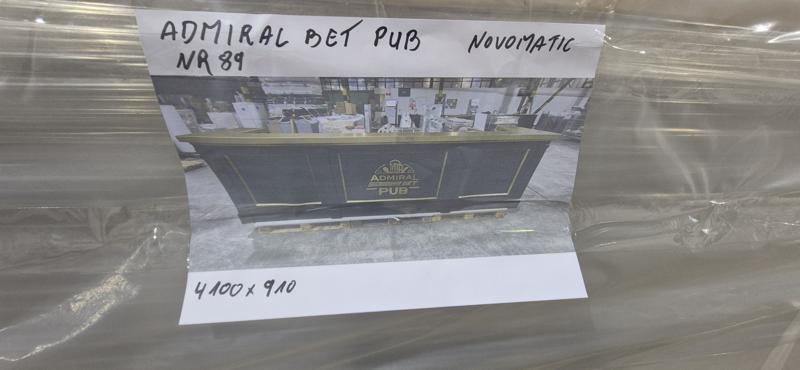 ADMIRAL BET PUB NOVOMATIC
NR 89
ADMIRAL
BET
PUB
4100 x 910